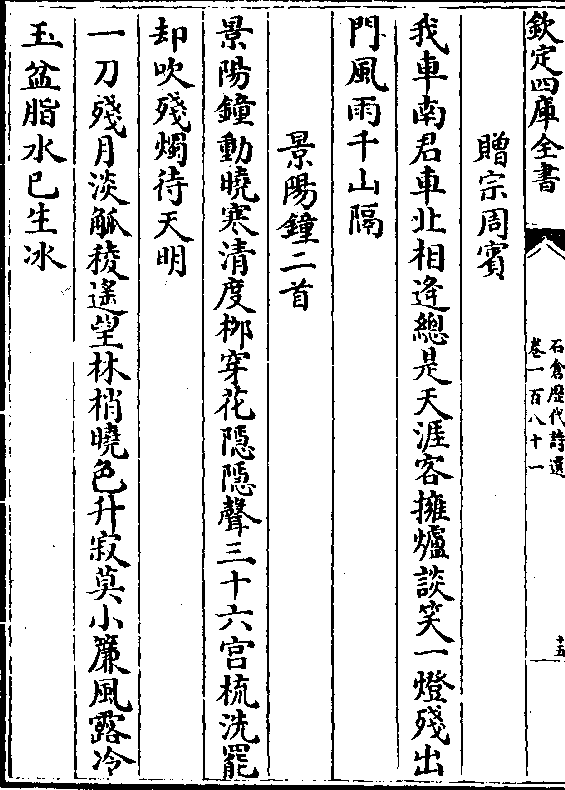 欽定四庫全書
石倉歷代詩選
卷一百八十一
十五
贈宗周賓
我車南君車北相逢總是天涯客擁爐談笑一燈殘出
門風雨千山隔
景陽鐘二首
景陽鐘動曉寒清度栁穿花隠隠聲三十六宫梳洗罷
却吹殘燭待天明
一刀殘月淡觚稜遙望林梢曉色升寂莫小簾風露冷
玉盆脂水已生冰